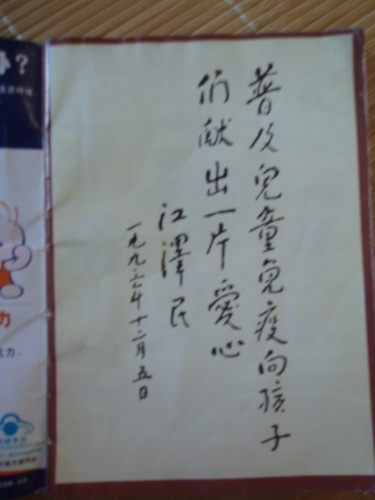 普及兒童免疫向孩子
们献出一片愛心
江澤民
一九九三年十二月五日
?
力
力.